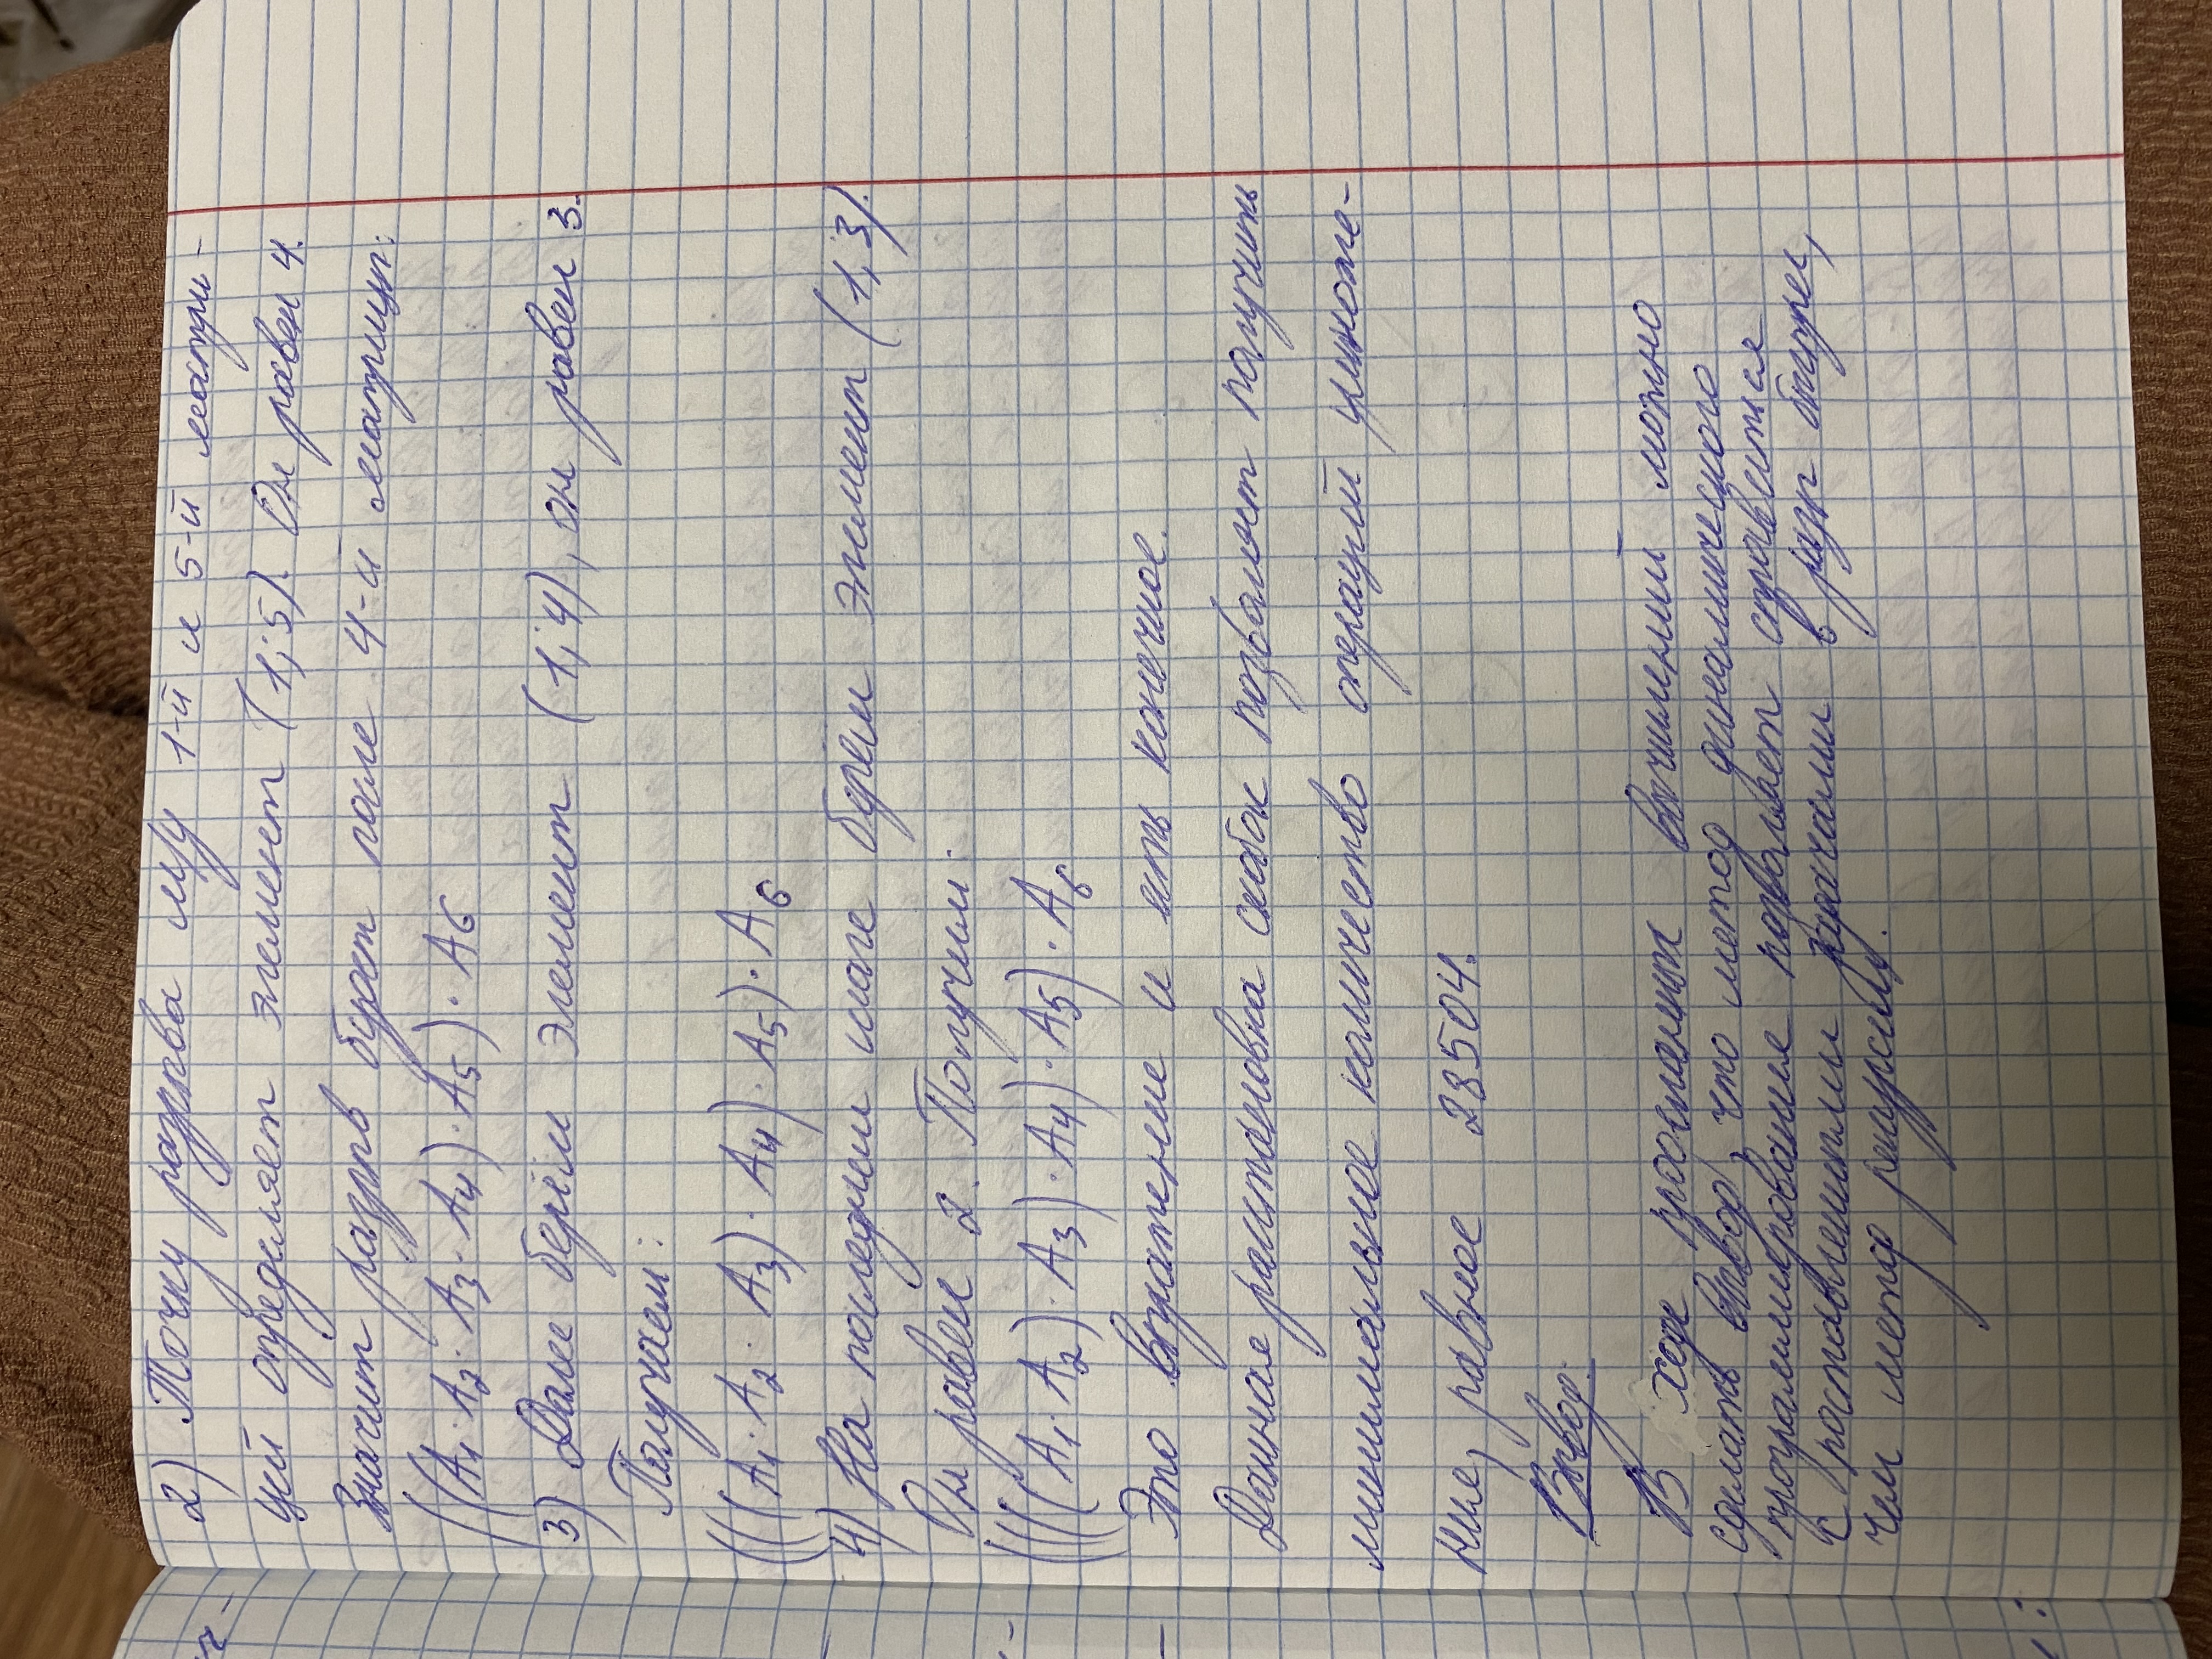 2) Точку разрыва м/у 1-й и 5-й матри-
цей определяет элемент (1;5). Он равен 4.
Значит разрыв будет после 4-й матрицы:
((A1·A2·A3·A4)·A5)·A6
3) Далее берём элемент (1;4), он равен 3.
Получаем:
(((A1·A2·A3)·A4)·A5)·A6
4) На последнем шаге берём элемент (1;3).
Он равен 2. Получим:
((((A1·A2)·A3)·A4)·A5)·A6
Это выражение и есть конечное.
Данная расстановка скобок позволяет получить
минимальное количество операций умноже-
ния, равное 28504.
Вывод:
В ходе проделанных вычислений можно
сделать вывод, что метод динамического
программирования позволяет справиться
с поставленными задачами в разы быстрее,
чем метод рекурсии.